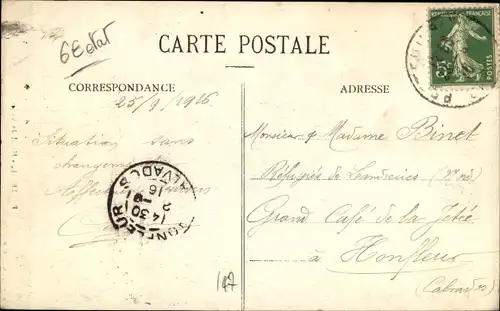 6E état
CARTE POSTALE
REPUBLIQUE FRANÇAISE
POSTES
CORRESPONDANCE
ADRESSE
25/9/1916
Situation sans
changement
Affectueux
Monsieur & Madame Binet
Réfugiés de Landrecies (Nord)
Grand Café de la Jetée
à Honfleur
(Calvados)
HONFLEUR
14 30
2
16
CALVADOS
147